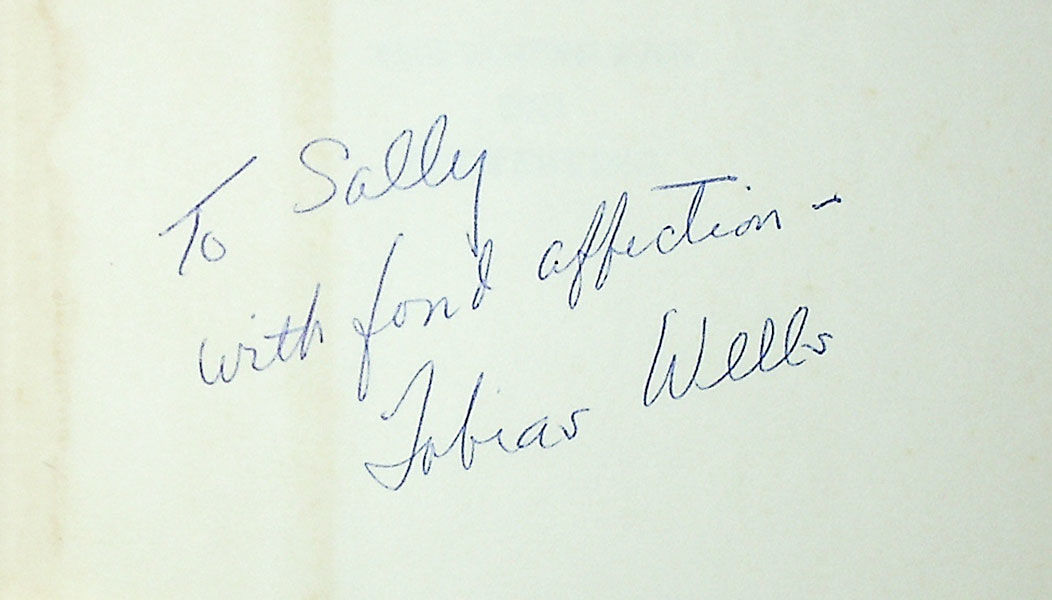 To Sally
with fond affection -
Tobias Wells